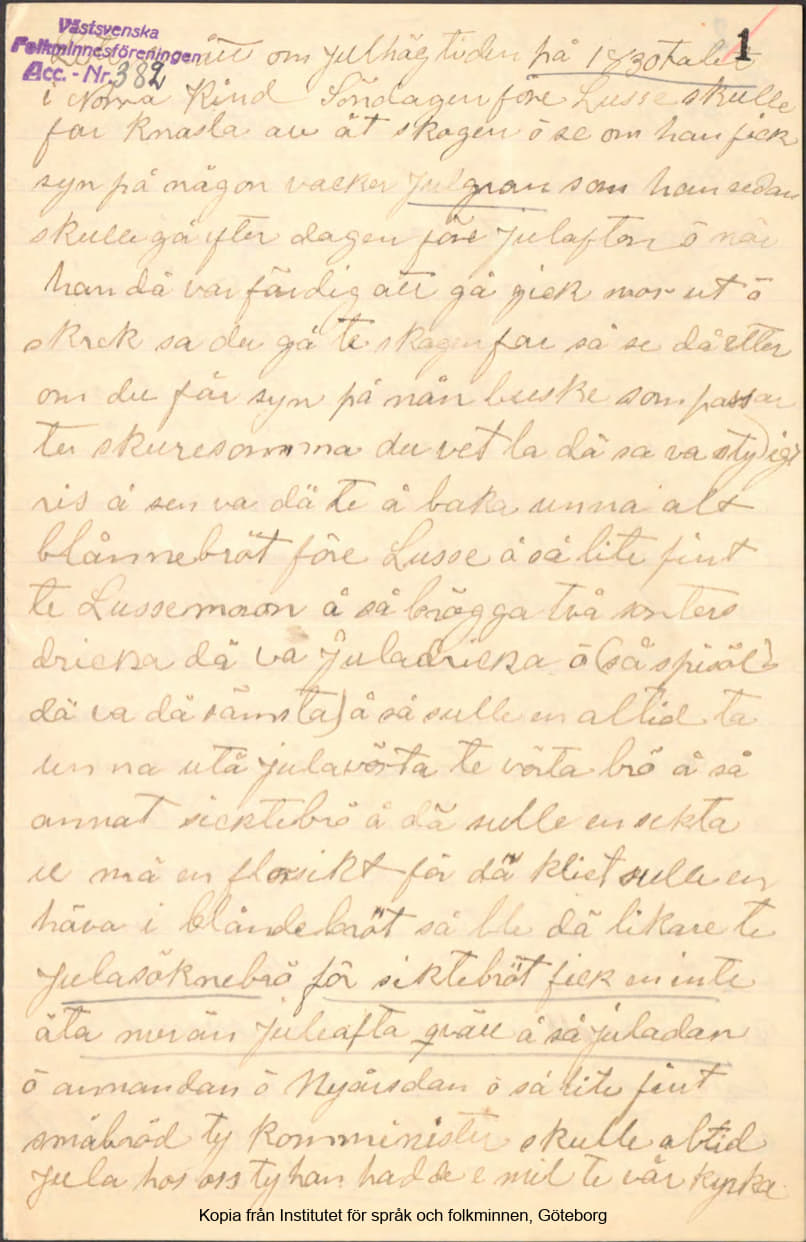 Västsvenska
Folkminnesföreningen
Acc. - Nr. 382
1
om Julhögtiden på 1830talet
i Norra Kind Söndagen före Lusse skulle
far knasla av åt skogen ö se om han fick
syn på någon vacker Julgran som han sedan
skulle gå efter dagen före Julafton ö när
han då var färdig att gå gick mor ut ö
skrek sa du gå te skogen far så se då etter
om du får syn på nån buske som passar
te skuresomma du vet la dä sa va
ris å sen va dä te å baka unna alt
blånnebröt före Lusse å så lite fint
te Lussemoron å så brögga två sorters
dricka dä va Juladricka ö (så spisöl
dä va dä sämsta) å så sulle en altid ta
unna utå julavörta te vörta brö å så
annat sicktebrö å dä sulle en sikta
mä en florsikt för dä kliet sulle en
häva i blåndebröt så ble dä likare te
Julasöknebrö för siktebröt fick en inte
äta mer än juleafta qväll å så juladan
ö annandan ö Nyårsdan ö så lite fint
småbröd ty Komminister skulle altid
Jula hos oss ty han hadde e mil te vår kyrka
Kopia från Institutet för språk och folkminnen, Göteborg